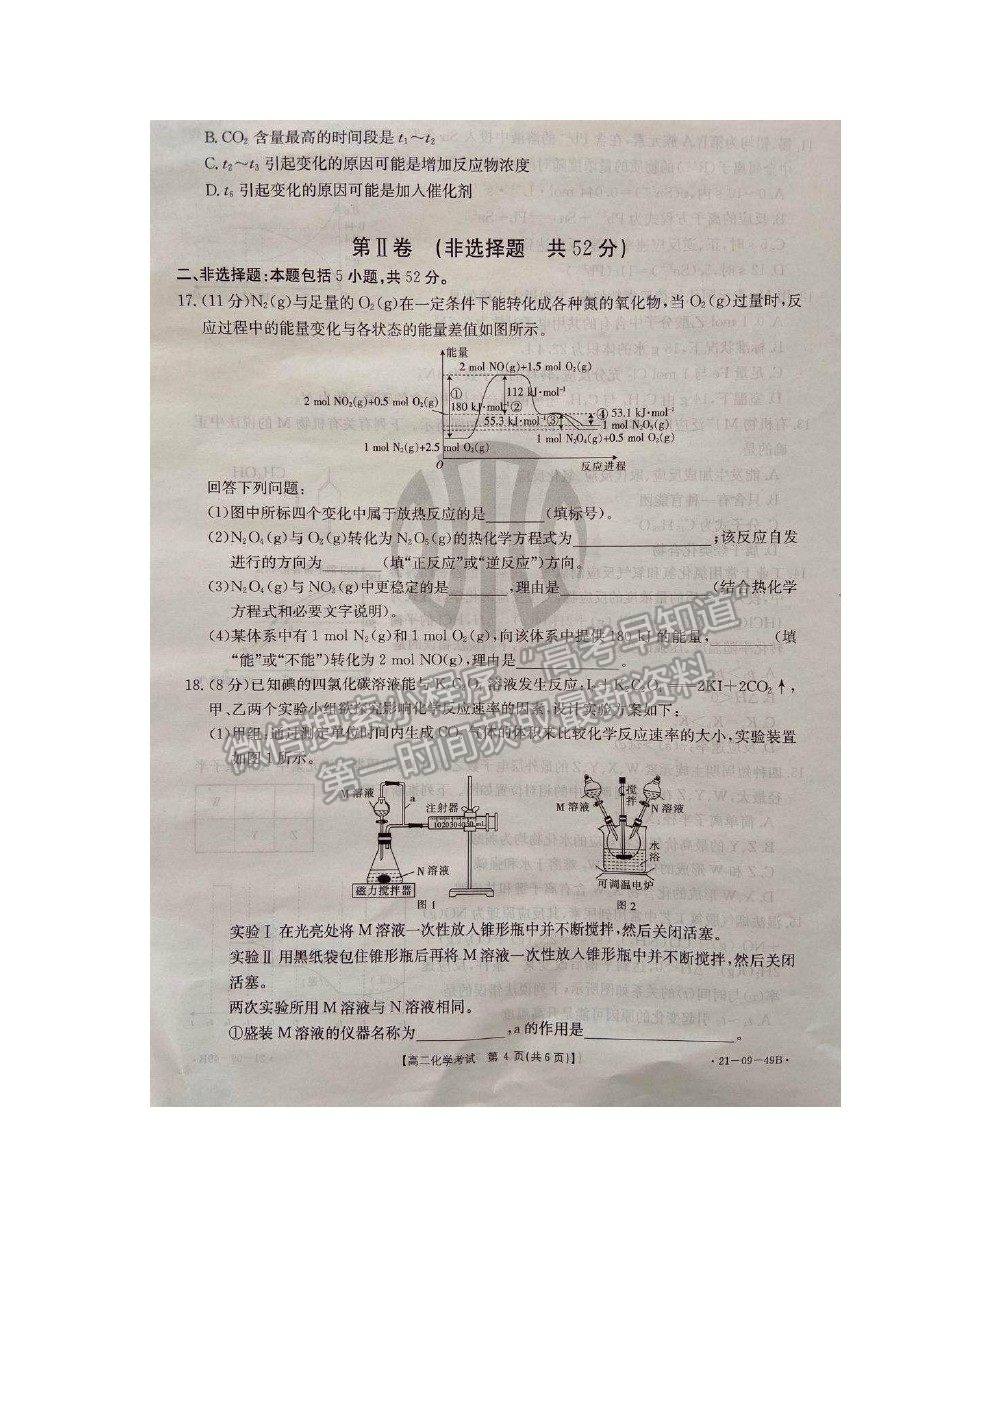 B. CO₂ 含量最高的时间段是 t₁～t₂
C. t₂～t₃ 引起变化的原因可能是增加反应物浓度
D. t₆ 引起变化的原因可能是加入催化剂
第Ⅱ卷 (非选择题 共52分)
二、非选择题:本题包括5小题,共52分。
17.(11分)N₂(g)与足量的O₂(g)在一定条件下能转化成各种氮的氧化物,当O₂(g)过量时,反
应过程中的能量变化与各状态的能量差值如图所示。
能量
2 mol NO(g)+1.5 mol O₂(g)
① 112 kJ·mol⁻¹
2 mol NO₂(g)+0.5 mol O₂(g)
180 kJ·mol⁻¹ ② ④ 53.1 kJ·mol⁻¹
55.3 kJ·mol⁻¹ ③ 1 mol N₂O₅(g)
1 mol N₂O₄(g)+0.5 mol O₂(g)
1 mol N₂(g)+2.5 mol O₂(g)
O 反应进程
回答下列问题:
(1)图中所标四个变化中属于放热反应的是________(填标号)。
(2)N₂O₄(g)与O₂(g)转化为N₂O₅(g)的热化学方程式为________________;该反应自发
进行的方向为________(填“正反应”或“逆反应”)方向。
(3)N₂O₄(g)与NO₂(g)中更稳定的是________,理由是________________(结合热化学
方程式和必要文字说明)。
(4)某体系中有1 mol N₂(g)和1 mol O₂(g),向该体系中提供180 kJ的能量,________(填
“能”或“不能”)转化为2 mol NO(g),理由是____________。
18.(8分)已知碘的四氯化碳溶液能与K₂C₂O₄溶液发生反应:I₂+K₂C₂O₄ 2KI+2CO₂↑,
甲、乙两个实验小组欲探究影响化学反应速率的因素,设计实验方案如下:
(1)甲组:通过测定单位时间内生成CO₂气体的体积来比较化学反应速率的大小,实验装置
如图1所示。
M溶液
a
注射器
1020304050 mL
N溶液
磁力搅拌器
图1
搅拌
M溶液 N溶液
水浴
可调温电炉
图2
实验Ⅰ 在光亮处将M溶液一次性放入锥形瓶中并不断搅拌,然后关闭活塞。
实验Ⅱ 用黑纸袋包住锥形瓶后再将M溶液一次性放入锥形瓶中并不断搅拌,然后关闭
活塞。
两次实验所用M溶液与N溶液相同。
①盛装M溶液的仪器名称为____________,a的作用是____________________。
【高二化学考试 第4页(共6页)】
·21-09-49B·
微信搜索小程序“高考早知道”
第一时间获取最新资料